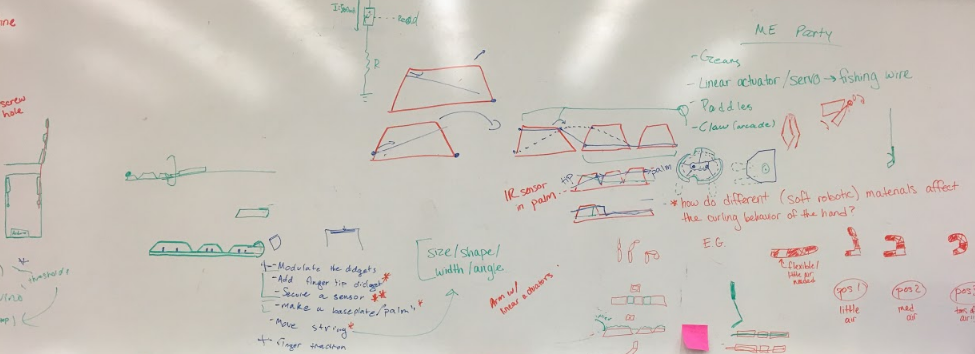 ine
screw
hole
thresholds
R
ME Party
- Gears
- Linear actuator/servo → fishing wire
- Paddles
- Claw (arcade)
tip
palm
IR sensor
in palm
* how do different (soft robotic) materials affect
the curling behavior of the hand?
E.G.
flexible/
little air
needed
pos 1
pos 2
pos 3
little
air
med
air
size/shape/
width/angle
- Modulate the didgets
- Add finger tip didget *
- Secure a sensor **
- make a baseplate/palm *
- Move string *
Finger traction
Arm w/
linear actuators